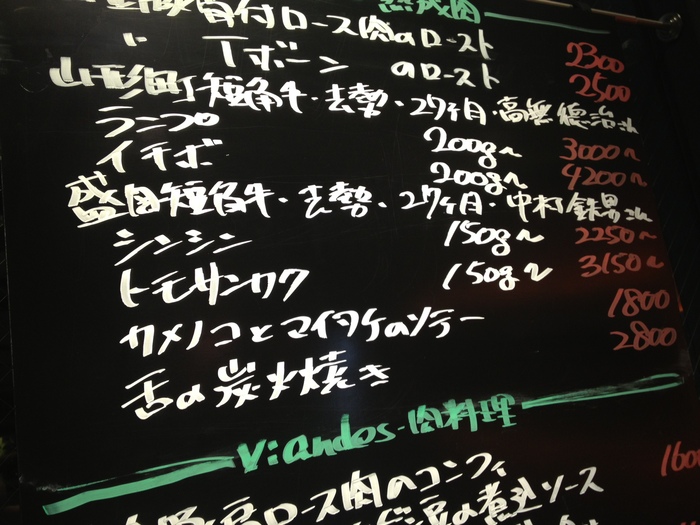 熟成肉
骨付ロース肉のロースト
〃 Tボーン のロースト 2300
山形町短角牛・去勢・27ヶ月・高無徳治さん 2500
ランプ 200g〜 3000〜
イチボ 200g〜 4200〜
盛岡短角牛・去勢・27ヶ月・中村鉄男さん
シンシン 150g〜 2250〜
トモサンカク 150g〜 3150〜
カメノコとマイタケのソテー 1800
舌の炭火焼き 2800
Viandes・肉料理
豚ロース肉のコンフィ
豆の煮込ソース